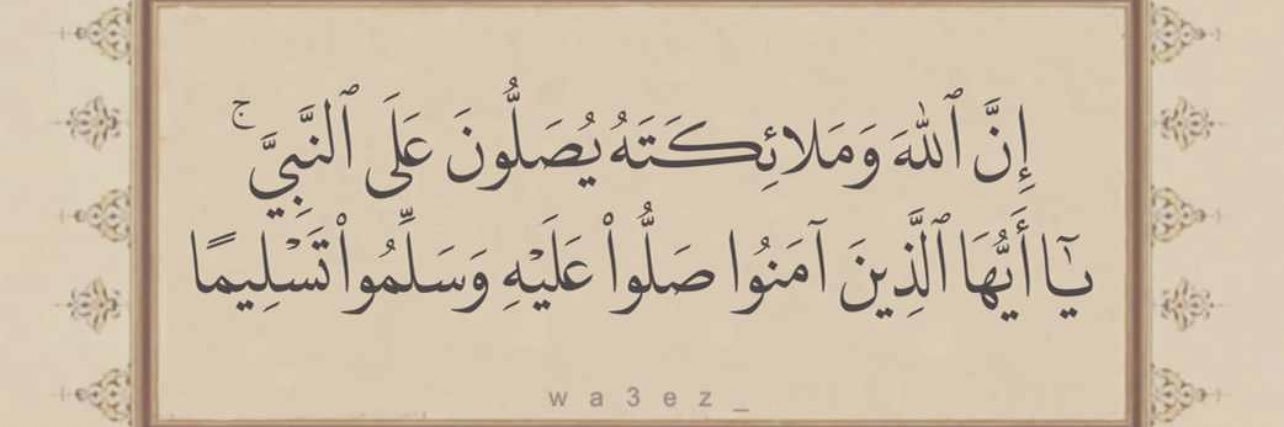 إِنَّ ٱللهَ وَمَلائِكَتَهُ يُصَلُّونَ عَلَى ٱلنَّبِيِّ ۚ
يَـٰٓا أَيُّهَا ٱلَّذِينَ آمَنُوا صَلُّوا۟ عَلَيْهِ وَسَلِّمُوا۟ تَسْلِيمًا
wa3ez_